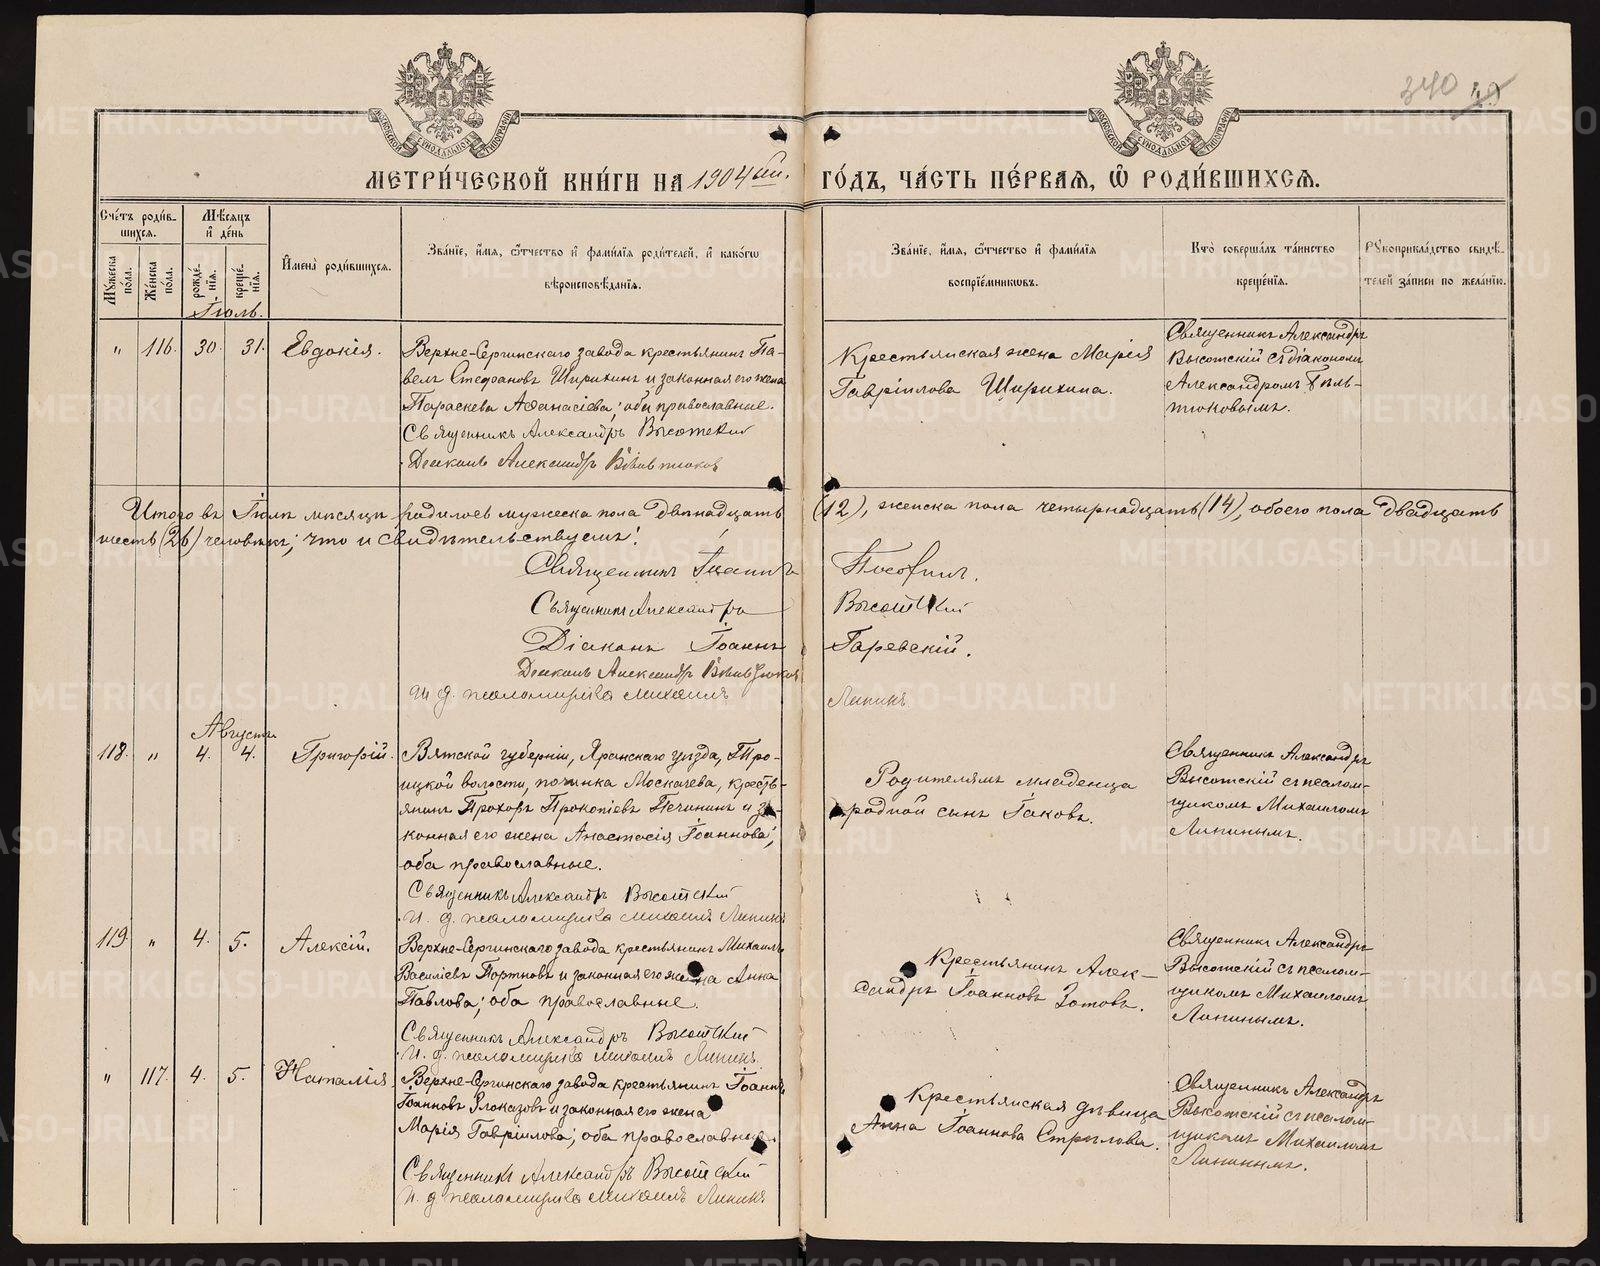 340
МЕТРИ́ЧЕСКОЙ КНИ́ГИ НА 1904 ый.
ГО́ДЪ, ЧА́СТЬ ПЕ́РВАЯ, Ѿ РОДИ́ВШИХСЯ.
МОСКОВСКОЙ СѴНОДАЛЬНОЙ ТИПОГРАФІИ
МОСКОВСКОЙ СѴНОДАЛЬНОЙ ТИПОГРАФІИ
Сче́тъ роди́в-
шихся.
Мѣ́сяцъ
и҆ де́нь
Мꙋжеска по́ла.
Же́нска по́ла.
рожде́нїя.
креще́нїя.
И҆мена̀ роди́вшихся.
Зва́нїе, и҆́мя, ѻ҆́тчество и҆ фамѝлїя роди́телей, и҆ како́гѡ
вѣроисповѣ́данїя.
Зва́нїе, и҆́мя, ѻ҆́тчество и҆ фамѝлїя
воспрїе́мникѡвъ.
Кто̀ соверша́лъ та́инство
креще́нїя.
Рꙋкоприкла́дство свидѣ́-
телей за́писи по жела́нїю.
Іюль.
" 116. 30. 31. Евдокія.
Верхне-Сергинскаго завода крестьянинъ Па-
велъ Стефановъ Ширихинъ и законная его жена
Параскева Аѳанасіева; оба православные.
Священникъ Александръ Высотскій
Діаконъ Александръ
Крестьянская жена Марія
Гавріилова Ширихина.
Священникъ Александръ
Высотскій съ діакономъ
Александромъ
Итого въ Іюлѣ мѣсяцѣ родилось мужеска пола двѣнадцать (12), женска пола четырнадцать (14), обоего пола двадцать
шесть (26) человѣкъ; что и свидѣтельствуемъ:
Священникъ Іоаннъ
Священникъ Александръ Высотскій
Діаконъ Іоаннъ Гаревскій.
Діаконъ Александръ
И. д. псаломщика Михаилъ Липинъ
Августъ.
118. " 4. 4. Григорій.
Вятской губерніи, Яранскаго уѣзда, Тро-
ицкой волости, починка Москачева, кресть-
янинъ Прохоръ Прокопіевъ Печининъ и за-
конная его жена Анастасія Іоаннова;
оба православные.
Священникъ Александръ Высотскій
И. д. псаломщика Михаилъ Липинъ
Родителямъ младенца
родной сынъ Іаковъ.
Священникъ Александръ
Высотскій съ псалом-
щикомъ Михаиломъ
Липинымъ.
119. " 4. 5. Алексій.
Верхне-Сергинскаго завода крестьянинъ Михаилъ
Василіевъ Портновъ и законная его жена Анна
Павлова; оба православные.
Священникъ Александръ Высотскій
И. д. псаломщика Михаилъ Липинъ.
Крестьянинъ Алек-
сандръ Іоанновъ Зотовъ.
Священникъ Александръ
Высотскій съ псалом-
щикомъ Михаиломъ
Липинымъ.
" 117. 4. 5. Наталія.
Верхне-Сергинскаго завода крестьянинъ Іоаннъ
Іоанновъ Глоказовъ и законная его жена
Марія Гавріилова; оба православные.
Священникъ Александръ Высотскій
И. д. псаломщика Михаилъ Липинъ.
Крестьянская дѣвица
Анна Іоаннова Стрѣлова.
Священникъ Александръ
Высотскій съ псалом-
щикомъ Михаиломъ
Липинымъ.
METRIKI.GASO-URAL.RU